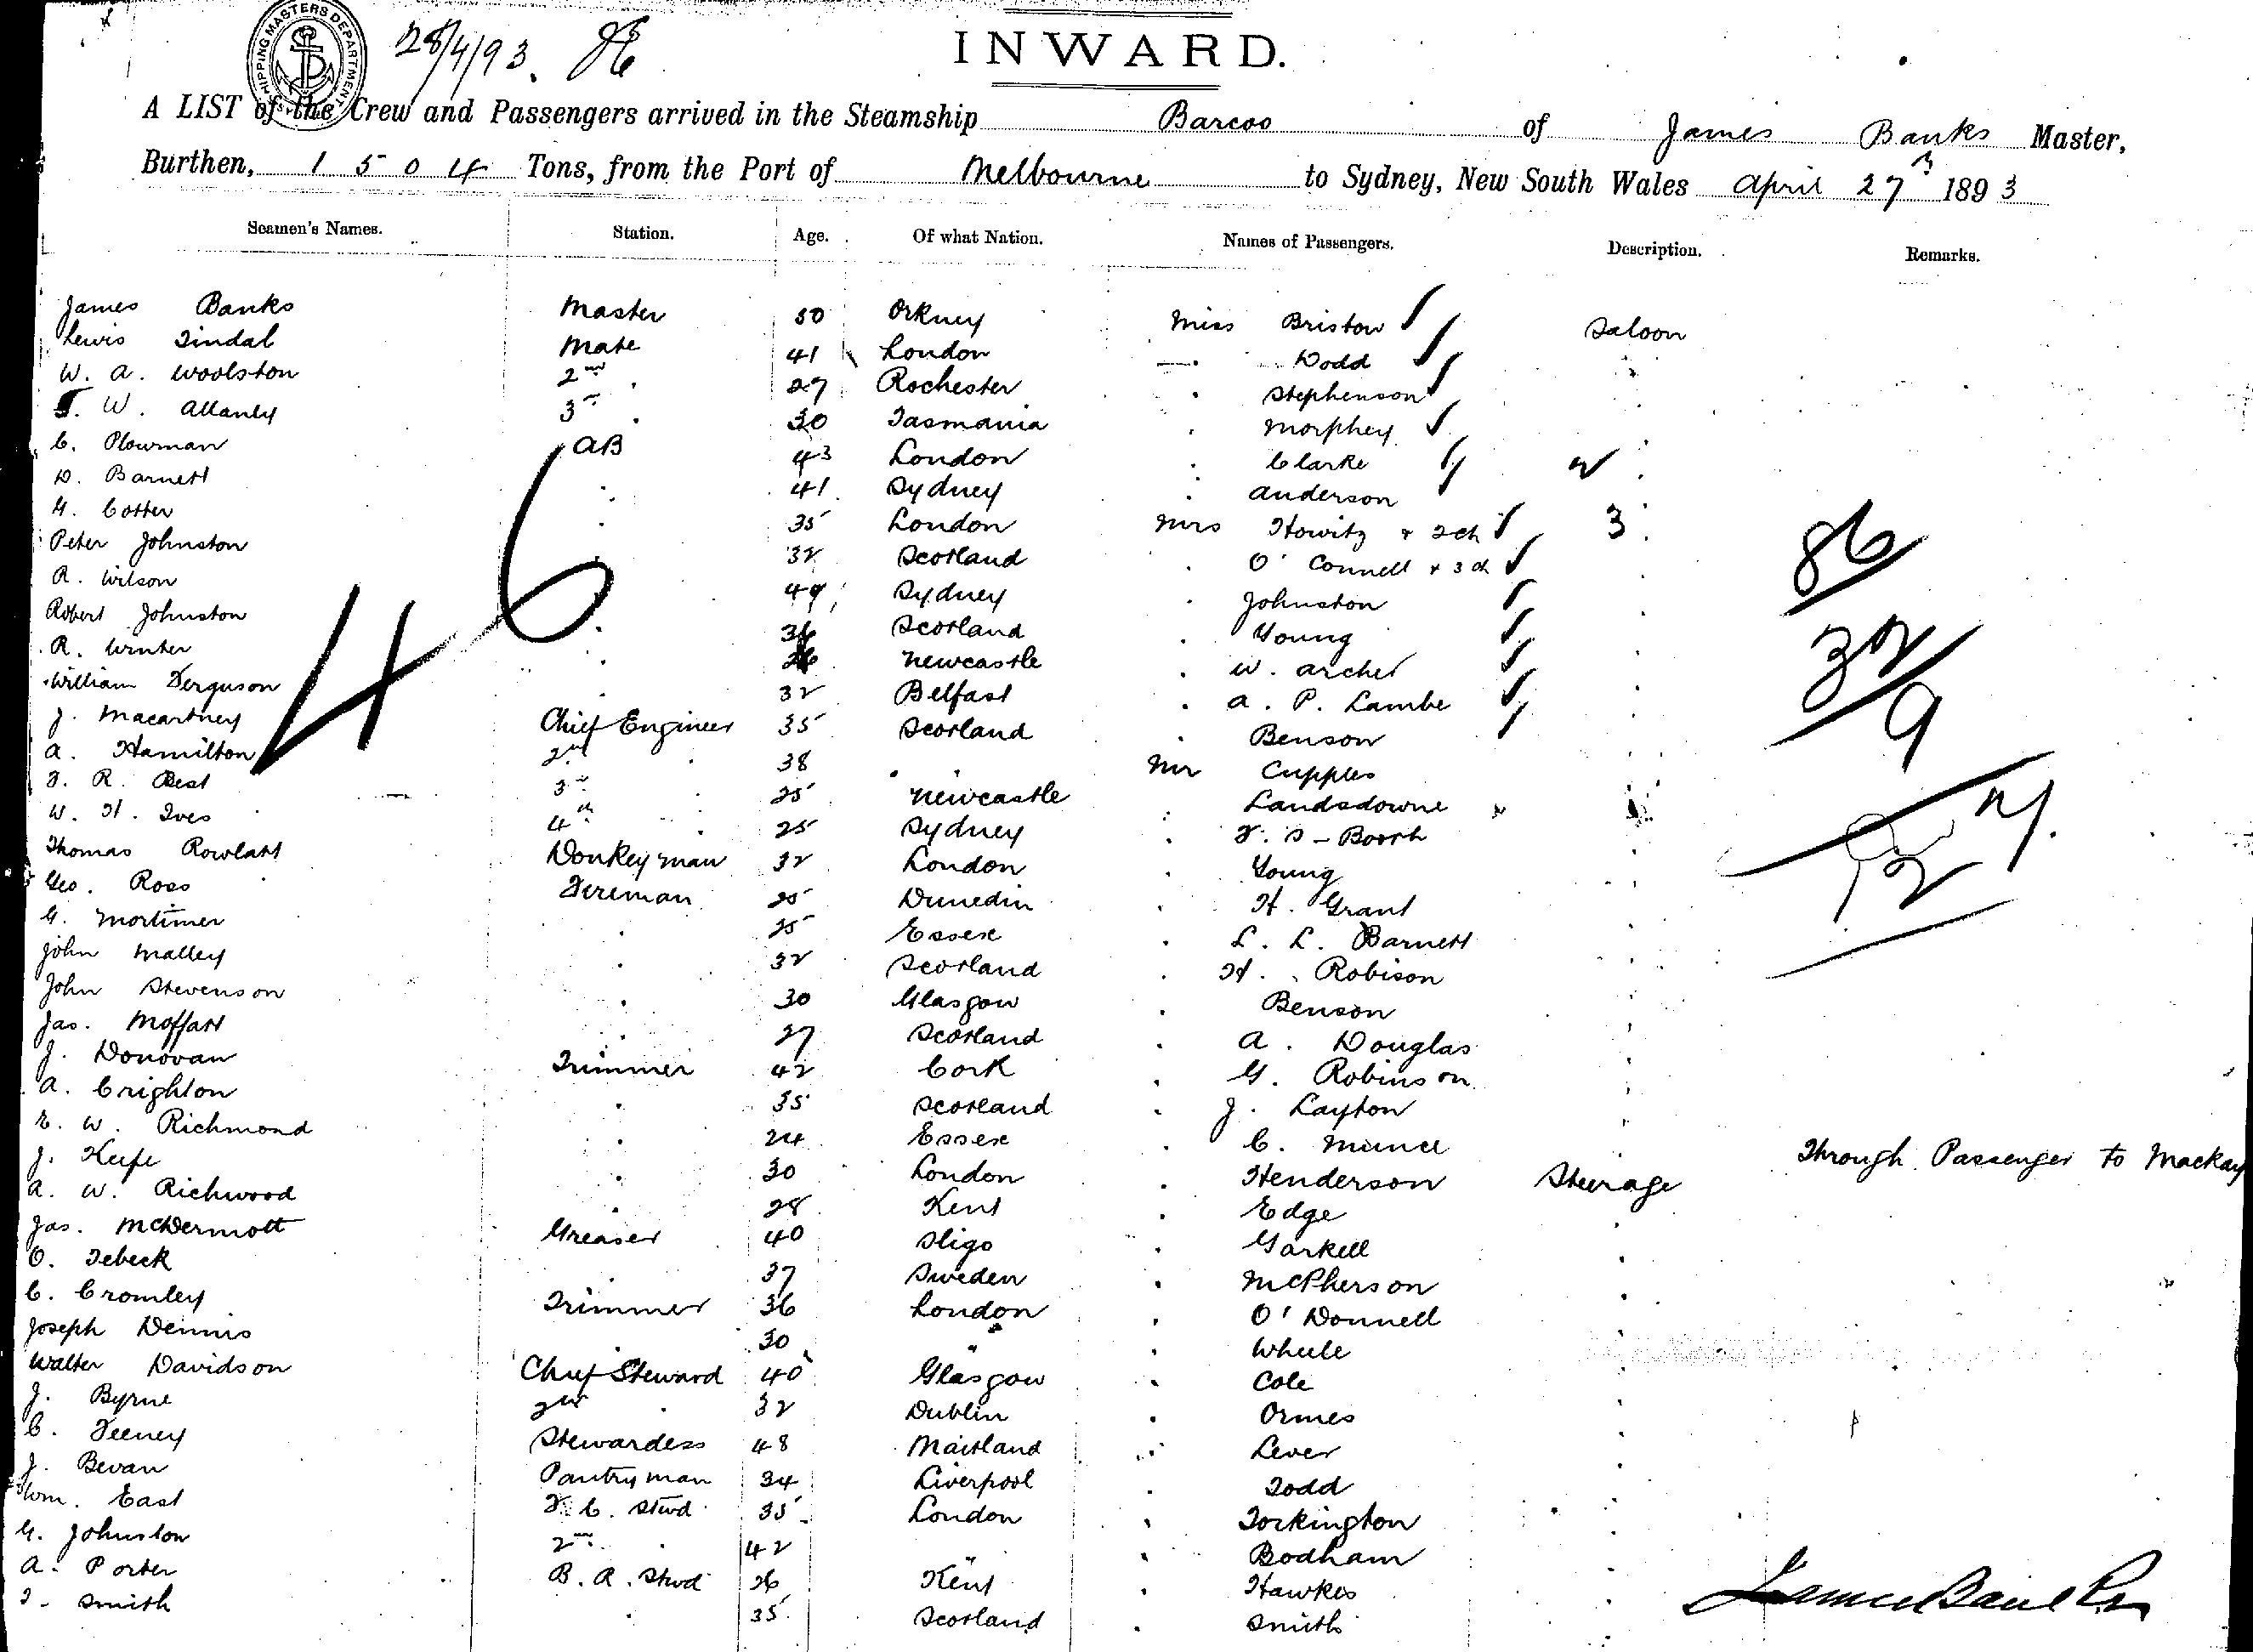 SHIPPING MASTERS DEPARTMENT
28/4/93.
INWARD.
A LIST of the Crew and Passengers arrived in the Steamship Barcoo of James Banks Master,
Burthen, 1504 Tons, from the Port of Melbourne to Sydney, New South Wales April 27th 1893
Seamen's Names. Station. Age. Of what Nation. Names of Passengers. Description. Remarks.
James Banks Master 50 Orkney Miss Bristow Saloon
Lewis Tindal Mate 41 London — Dodd
W. A. Woolston 2nd . 27 Rochester . Stephenson
W. Allanby 3rd . 30 Tasmania . Morphey
C. Plowman AB 43 London . Clarke
D. Barnett . 41 Sydney . Anderson
G. Cotter . 35 London Mrs Howitz + 2 ch 3
Peter Johnston . 32 Scotland . O'Connell + 3 ch
R. Wilson . Sydney . Johnston
Robert Johnston . Scotland . Young
R. Winter . Newcastle . W. Archer
William Ferguson . 32 Belfast . A. P. Lambe
J. Macartney Chief Engineer 35 Scotland . Benson
A. Hamilton 2nd . 38 . . Mr Cupples
F. R. Best 3rd . 25 Newcastle . Landsdowne
W. H. Ives 4th . 25 Sydney . F. S - Booth
Thomas Rowlatt Donkeyman 32 London . Young
Geo. Ross Fireman 25 Dunedin . H. Grant
G. Mortimer . 25 Essex . L. L. Barnett
John Malley . 32 Scotland . H. Robison
John Stevenson . 30 Glasgow . Benson
Jas. Moffatt . 27 Scotland . A. Douglas
J. Donovan Trimmer 42 Cork . G. Robinson
A. Crighton . 35 Scotland . J. Layton
E. W. Richmond . 24 Essex . C. Through Passenger to Mackay
J. Keefe . 30 London . Henderson Steerage
A. W. Richwood . 28 Kent . Edge
Jas. McDermott Greaser 40 Sligo . Garkell
O. Tebeck . 37 Sweden . McPherson
C. Cromley Trimmer 36 London . O'Donnell
Joseph Dennis 30 " . Wheele
Walter Davidson Chief Steward 40 Glasgow . Cole
J. Byrne 2nd . 32 Dublin . Ormes
C. Feeney Stewardess 48 Maitland . Lever
J. Bevan Pantryman 34 Liverpool . Todd
Wm. East F. C. Stwd 35 London . Torkington
G. Johnston 2nd . 42 " . Bodham
A. Porter B. R. Stwd 26 Kent . Hawkes
T. Smith . 35 Scotland . Smith
46
86
32
9
27.
12
James Banks